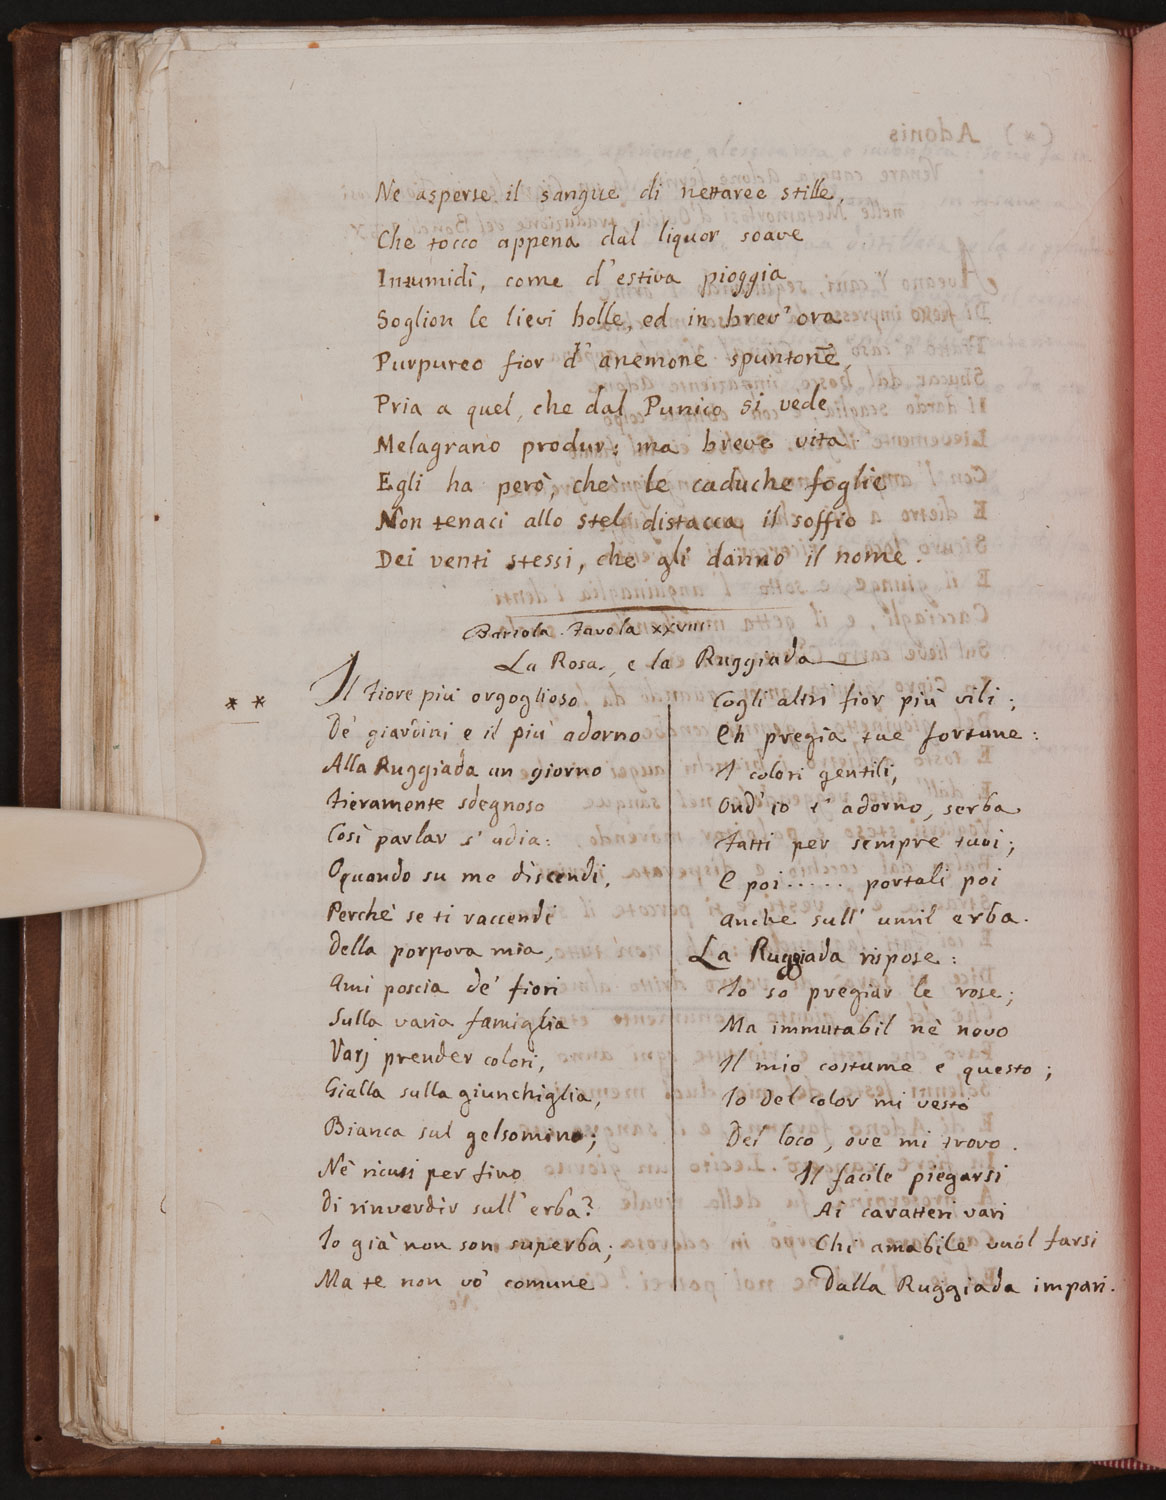 Ne asperse il sangue di nettaree stille,
Che tocco appena dal liquor soave
Intumidì, come d'estiva pioggia
Soglion le lievi bolle, ed in brev'ora
Purpureo fior d'anemone spuntonne,
Pria a quel, che dal Punico si vede
Melagrano produr; ma breve vita
Egli ha però, chè le caduche foglie
Non tenaci allo stel distacca il soffio
Dei venti stessi, che gli danno il nome.
Bertola. Favola XXVIII
La Rosa, e la Ruggiada
** Il Fiore più orgoglioso
De' giardini e il più adorno
Alla Ruggiada un giorno
Fieramente sdegnoso
Così parlar s'udia:
O quando su me discendi,
Perchè se ti raccendi
Della porpora mia,
Ami poscia de' fiori
Sulla varia famiglia
Varj prender colori,
Gialla sulla giunchiglia,
Bianca sul gelsomino;
Nè ricusi per fino
Di rinverdir sull'erba?
Io già non son superba;
Ma te non vo' comune
Cogli altri fior più vili;
Eh pregia tue fortune:
I colori gentili,
Ond'io t'adorno, serba
Fatti per sempre tuoi;
E poi...... portali poi
Anche sull'umil erba.
La Ruggiada rispose:
Io so pregiar le rose;
Ma immutabil nè novo
Il mio costume e questo;
Io del color mi vesto
Del loco, ove mi trovo.
Il facile piegarsi
Ai caratteri vari
Chi amabile vuol farsi
Dalla Ruggiada impari.
(*) Adonis